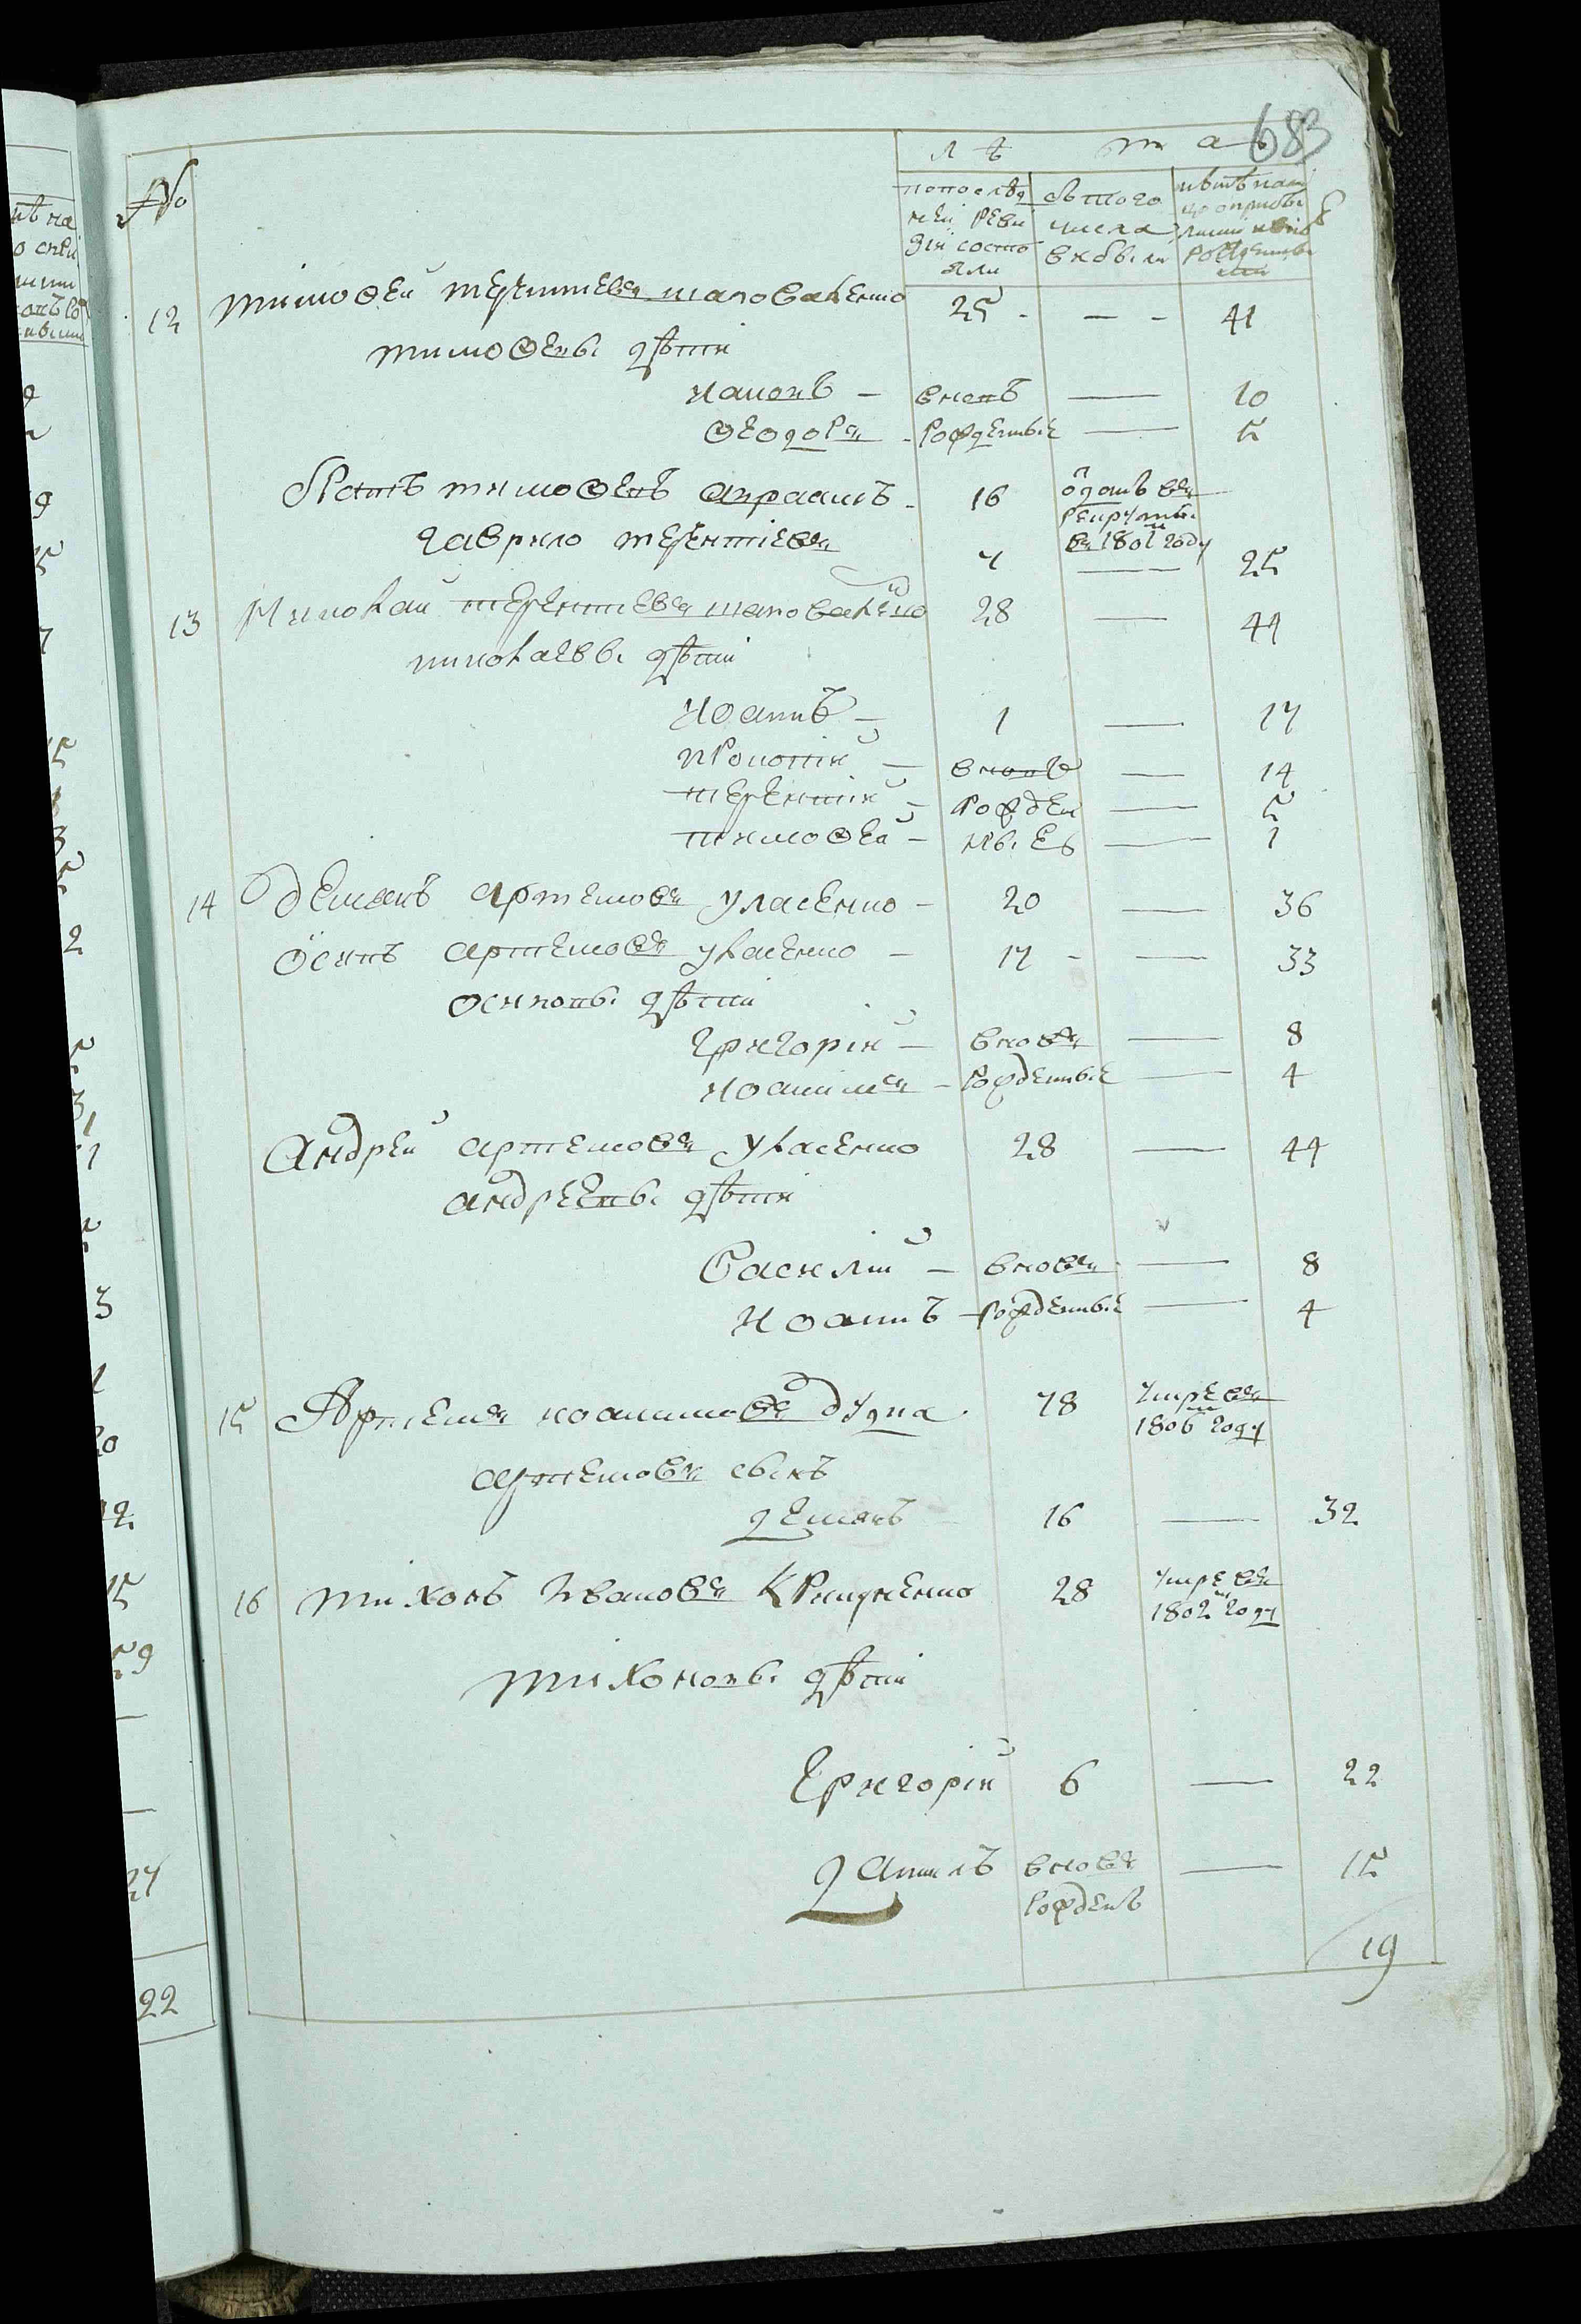 683
№
лѣта
попослѣд
ней реви
зіи состо
яли
съ того
числа
выбыли
12 Тимофей терентиевъ шаповаленко 25 - - - 41
тимофеевы дѣти
Иаковъ — вновь — 10
Феодоръ - рожденные — 5
Братъ тимофеевъ авраамъ - 16 одатъ въ
рекруты
въ 1801м году
гаврило терентіевъ 7 — 25
13 Николай терентиевъ шаповаленко 28 — 44
николаевы дѣти
Иоаннъ — 1 — 17
прокопій — вновь — 14
терентій — рожден — 5
тимофей — ные — 1
14 Демянъ артемовъ уласенко — 20 — 36
осипъ артемовъ уласенко — 17 - — 33
осиповы дѣти
григорій — вновь — 8
Иоакимъ — рожденные — 4
Андрей артемовъ уласенко 28 — 44
андреевы дѣти
Василій — вновь — 8
Иоаннъ — рожденные — 4
15 Артемъ иоаннов дудка 78 умре въ
1806м году
артемовъ сынъ
демянъ 16 — 32
16 тихонъ Ивановъ 28 умре въ
1802м году
тихоновы дѣти
Григорій 6 — 22
Данилъ вновь — 15
рожденъ
19
22